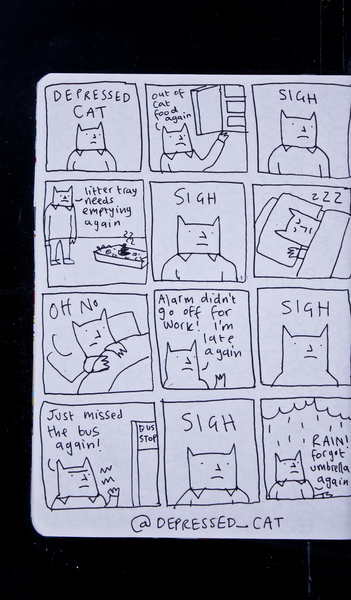 DEPRESSED
CAT
out of
cat
food
again
SIGH
litter tray
needs
emptying
again
SIGH
ZZZ
OH NO
Alarm didn't
go off for
work! I'm
late
again
SIGH
Just missed
the bus
again!
BUS
STOP
SIGH
RAIN!
forgot
umbrella
again
@DEPRESSED_CAT